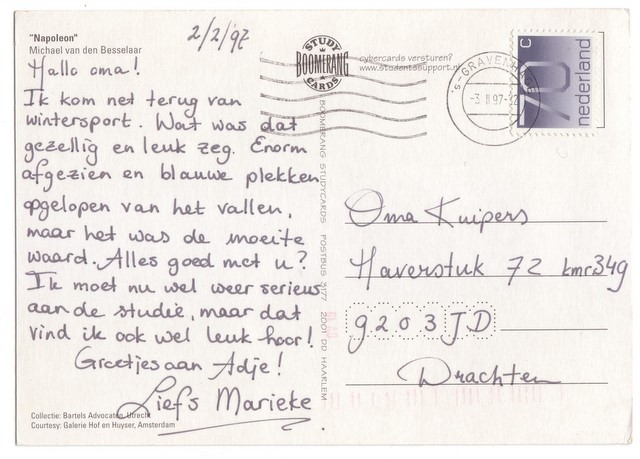 "Napoleon"
Michael van den Besselaar
2/2/97
Hallo oma!
Ik kom net terug van
wintersport. Wat was dat
gezellig en leuk zeg. Enorm
afgezien en blauwe plekken
opgelopen van het vallen,
maar het was de moeite
waard. Alles goed met u?
Ik moet nu wel weer serieus
aan de studie, maar dat
vind ik ook wel leuk hoor!
Groetjes aan Adje!
Liefs Marieke
Collectie: Bartels Advocaten, Utrecht
Courtesy: Galerie Hof en Huyser, Amsterdam
STUDY
BOOMERANG
CARDS
cybercards versturen?
www.studentssupport.nl
BOOMERANG STUDYCARDS POSTBUS 3177 2001 DD HAARLEM
's-GRAVEN
-3 II 97-
70 c
nederland
Oma Kuipers
Haverstuk 72 kmr 349
9203 JD
Drachten